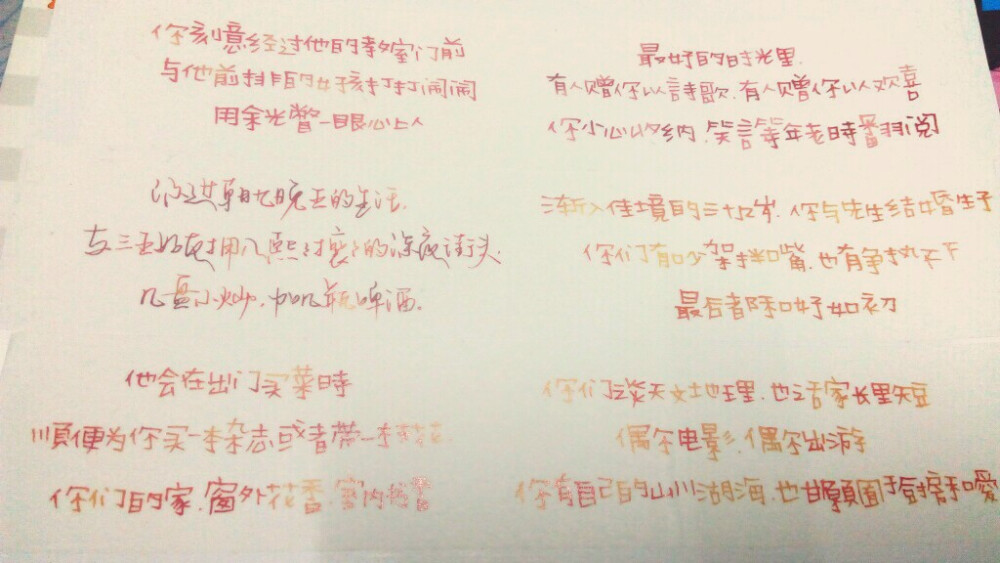 你刻意经过他的教室门前
与他前排的女孩打打闹闹
用余光瞥一眼心上人
最好的时光里.
有人赠你以詩歌.有人赠你以欢喜
你小心收纳.笑言等年老時翻阅
朝九晚五的生活.
与三五好友拥入熙熙攘攘的深夜街头.
几盘小炒.加几瓶啤酒.
渐入佳境的三十岁.你与先生结婚生子
你们有吵架拌嘴.也有争执不下
最后都和好如初
他会在出门买菜時
順便为你买一本杂志或者带一束
你们的家.窗外花香.室内
你们谈天文地理.也话家长里短
偶尔电影.偶尔出游
你有自己的山川湖海.也甘願囿于厨房和愛